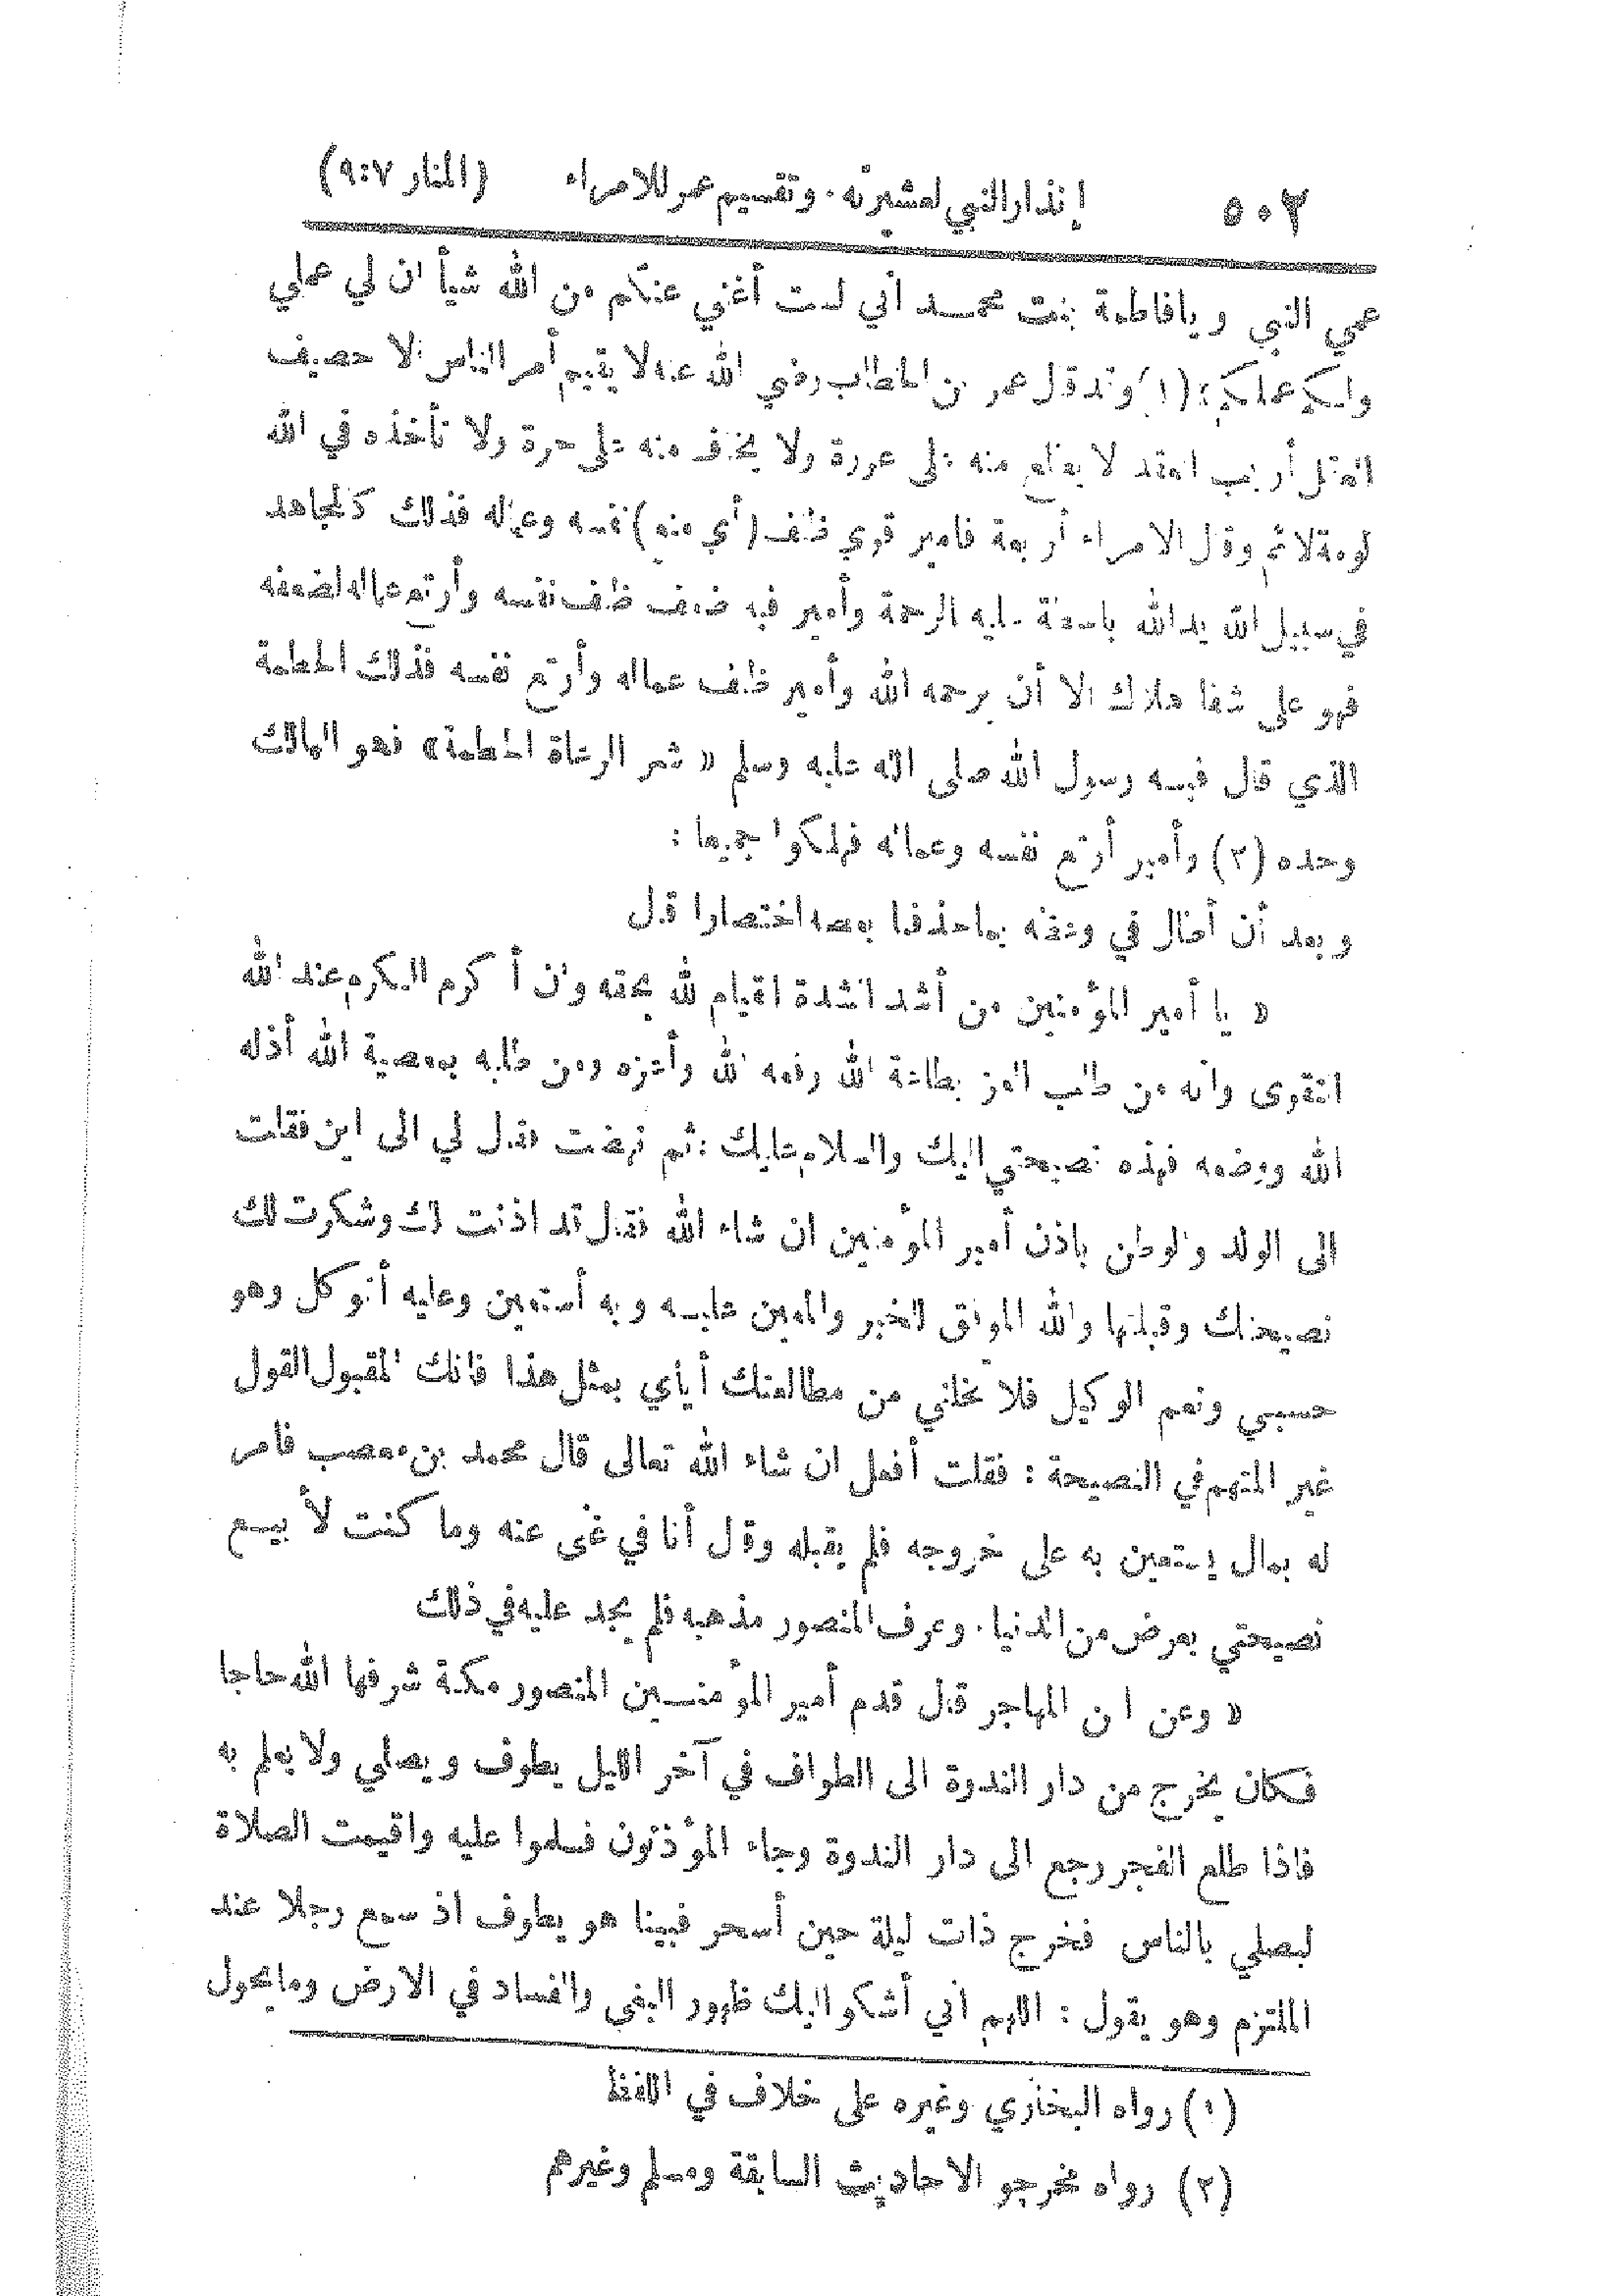 ٥٠٢ إنذار النبي لعشيرته . وتقسيم عمر للامراء (المنار ٩:٧)
عمي النبي ويافاطمة بنت محمد أني لست أغني عنكم من الله شيأ ان لي عملي
ولكم عملكم : (١) وقد قال عمر بن الخطاب رضي الله عنه لا يقيم أمر الناس الا حصيف
العقل أريب العقد لا يطلع منه على عورة ولا يخاف منه على حرة ولا تأخذه في الله
لومة لائم وقال الامراء أربعة فامير قوي ظلف (أي منع) نفسه وعماله فذلك كالمجاهد
في سبيل الله يد الله باسطة عليه الرحمة وأمير فيه ضعف ظلف نفسه وأرتع عماله لضعفه
فهو على شفا هلاك الا أن يرحمه الله وأمير ظلف عماله وأرتع نفسه فذلك الحطمة
الذي قال فيه رسول الله صلى الله عليه وسلم « شر الرعاة الحطمة» فهو الهالك
وحده (٢) وأمير أرتع نفسه وعماله فهلكوا جميعا :
وبعد أن أطال في وعظه بما حذفنا بعضه اختصارا قال
« يا أمير المؤمنين من أشد الشدة القيام لله بحقه وان أكرم الكرم عند الله
التقوى وانه من طلب العز بطاعة الله رفعه الله وأعزه ومن طلبه بمعصية الله أذله
الله ووضعه فهذه نصيحتي اليك والسلام عليك : ثم نهضت فقال لي الى اين فقلت
الى الولد والوطن باذن أمير المؤمنين ان شاء الله فقال قد اذنت لك وشكرت لك
نصيحتك وقبلتها والله الموفق للخير والمعين عليه وبه أستعين وعليه أتوكل وهو
حسبي ونعم الوكيل فلا تخلني من مطالعتك أياي بمثل هذا فانك المقبول القول
غير المتهم في النصيحة : فقلت أفعل ان شاء الله تعالى قال محمد بن مصعب فامر
له بمال يستعين به على خروجه فلم يقبله وقال أنا في غنى عنه وما كنت لأبيع
نصيحتي بعرض من الدنيا . وعرف المنصور مذهبه فلم يجد عليه في ذلك
« وعن ابن المهاجر قال قدم أمير المؤمنين المنصور مكة شرفها الله حاجا
فكان يخرج من دار الندوة الى الطواف في آخر الليل يطوف ويصلي ولا يعلم به
فاذا طلع الفجر رجع الى دار الندوة وجاء المؤذنون فسلموا عليه واقيمت الصلاة
ليصلي بالناس فخرج ذات ليلة حين أسحر فبينا هو يطوف اذ سمع رجلا عند
الملتزم وهو يقول : اللهم أني أشكو اليك ظهور البغي والفساد في الارض وما يحول
(١) رواه البخاري وغيره على خلاف في اللفظ
(٢) رواه مخرجو الاحاديث السابقة ومسلم وغيرهم